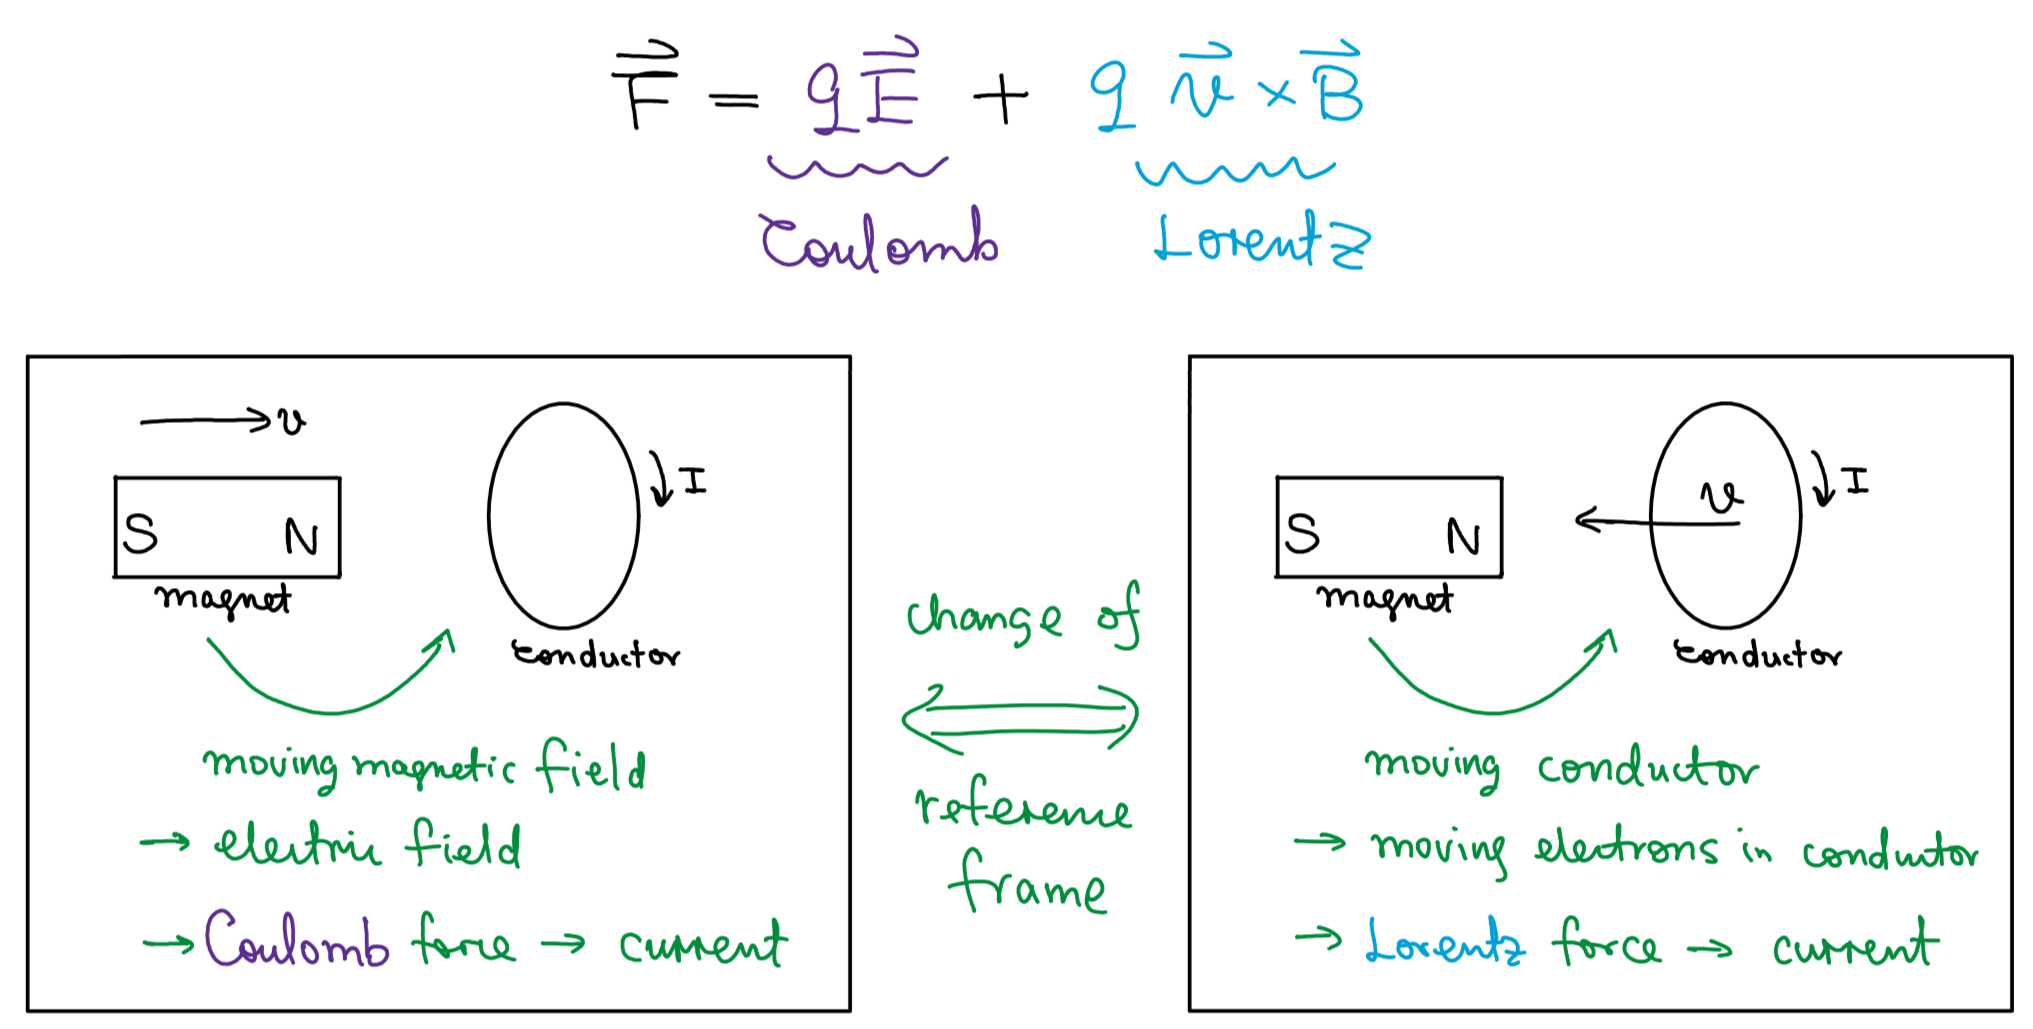 F⃗ = qE⃗ + q v⃗ × B⃗
Coulomb Lorentz
v
I
S N
magnet
conductor
moving magnetic field
→ electric field
→ Coulomb force → current
change of
reference
frame
v
I
S N
magnet
conductor
moving conductor
→ moving electrons in conductor
→ Lorentz force → current